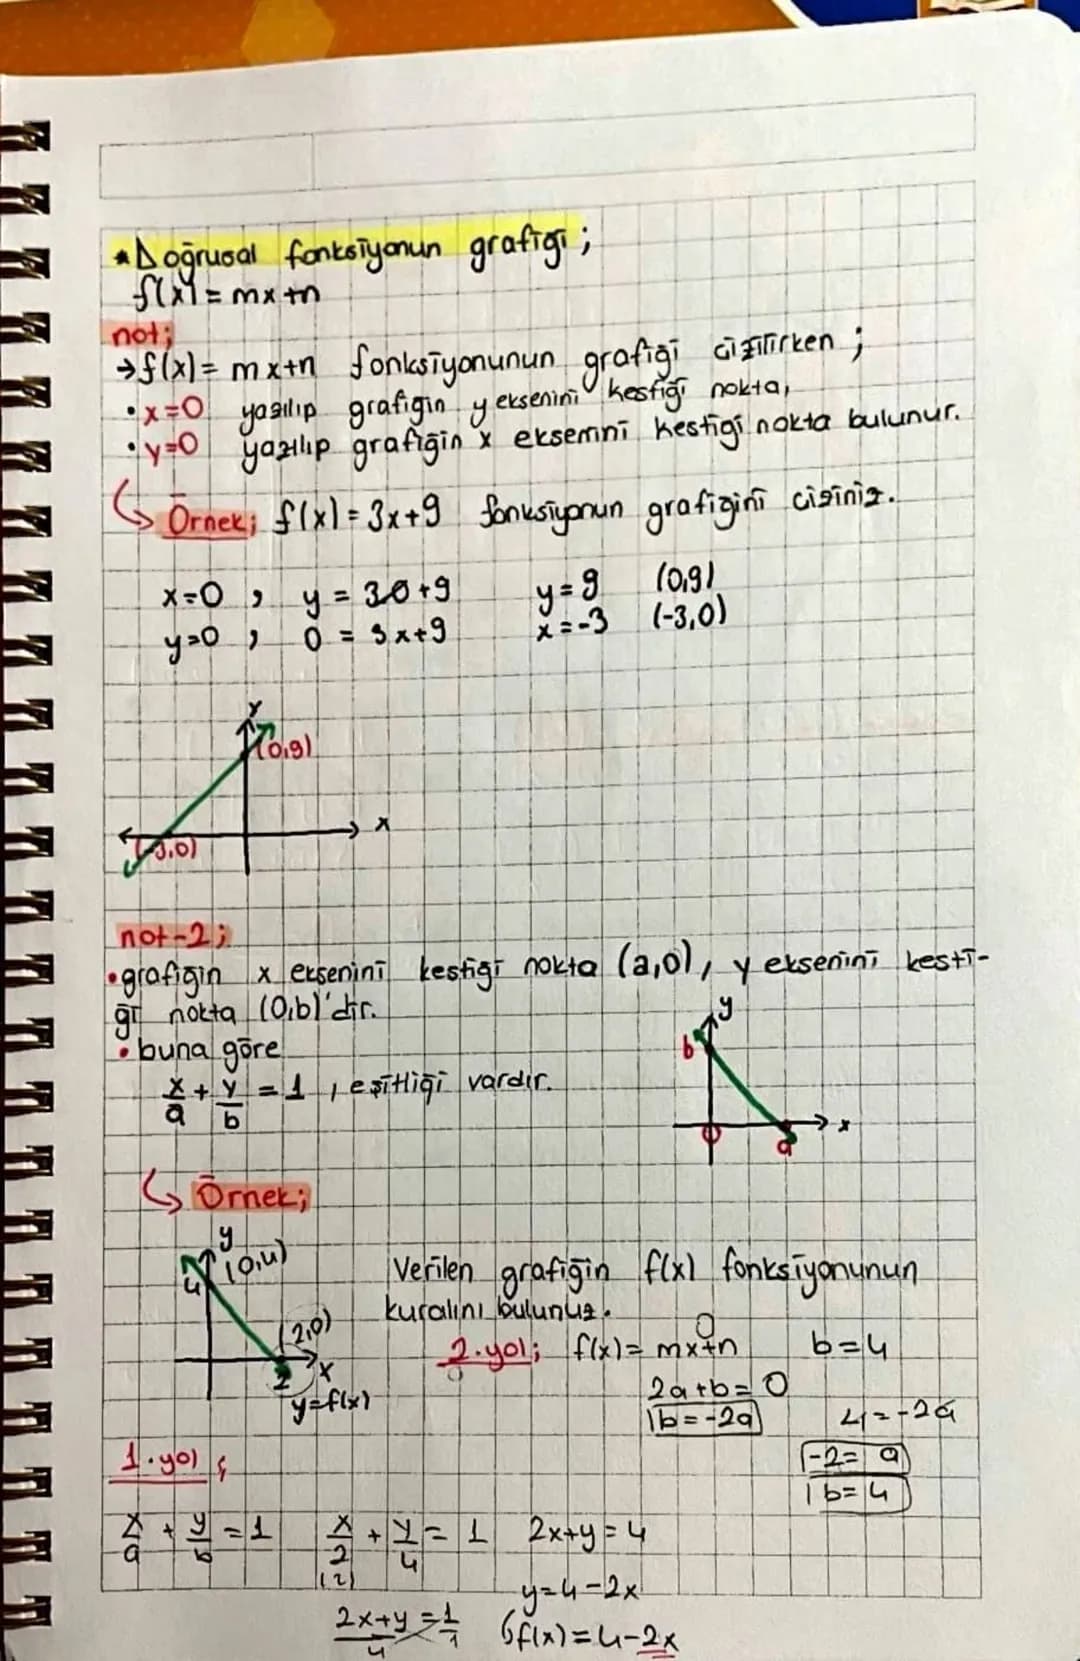 *Doğrusal fonksiyonun grafiği;
f(x) = mx+n
not;
→f(x) = mx+n fonksiyonunun grafiği çizilirken ;
• x=0 yazılıp grafiğin y eksenini kestiği nokta,
• y=0 yazılıp grafiğin x eksenini kestiği nokta bulunur.
Örnek; f(x) = 3x+9 fonksiyonun grafiğini çiziniz.
x=0 , y = 3.0+9 y = 9 (0,9)
y=0 , 0 = 3x+9 x = -3 (-3,0)
y
(0,9)
x
(-3,0)
not-2;
•grafiğin x eksenini kestiği nokta (a,0), y eksenini kesti-
ği nokta (0,b)'dir.
• buna göre
x/a + y/b = 1 , eşitliği vardır.
y
b
x
0
a
Örnek;
y
(0,4)
4
(2,0)
x
2
y=f(x)
Verilen grafiğin f(x) fonksiyonunun
kuralını bulunuz.
2.yol; f(x) = mx+n b=4
0
2a+b=0
b=-2a 4=-2a
-2=a
b=4
1.yol ;
x/a + y/b = 1 x/2 + y/4 = 1 2x+y=4
(2)
y=4-2x
2x+y/4 = 1/1 f(x)=4-2x